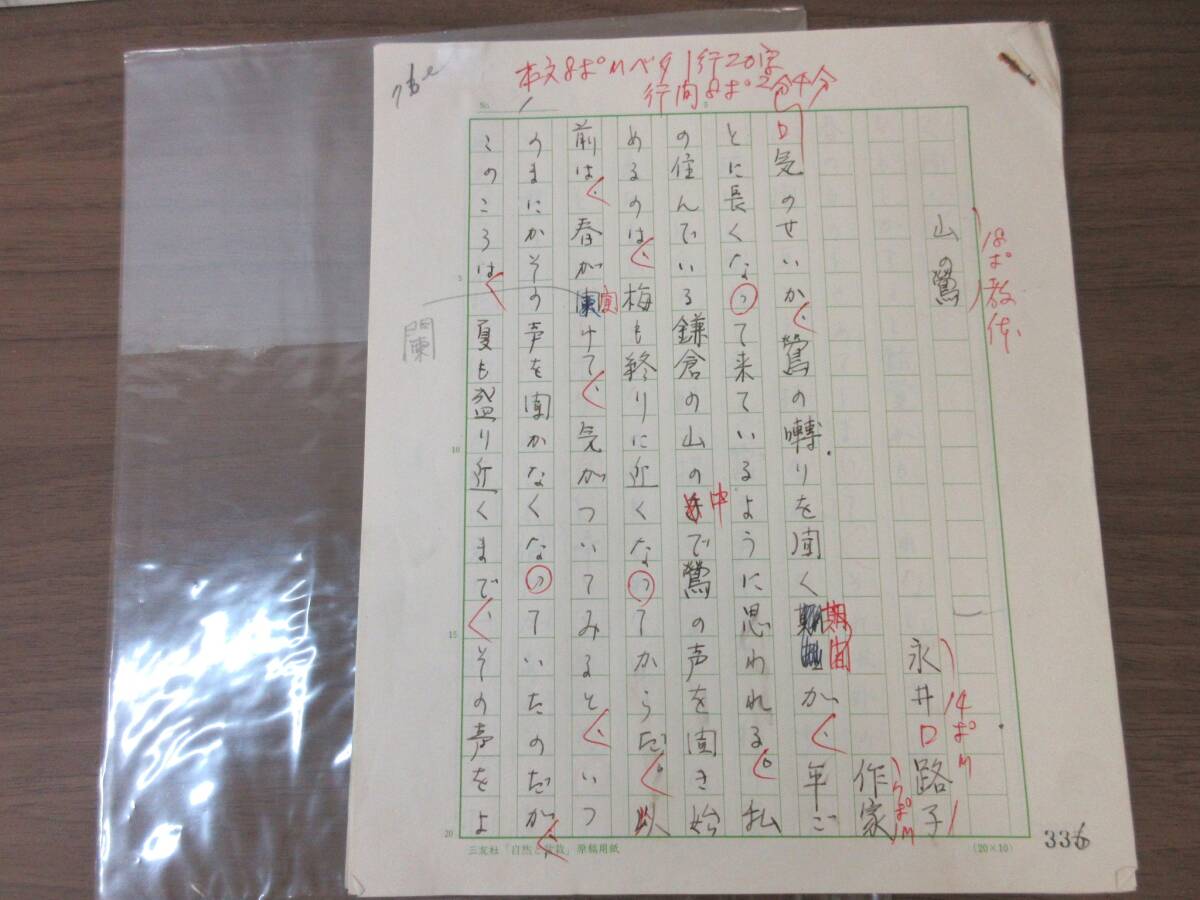 本文8ポMベタ1行20字
行間8ポ2分4分
No. 1
18ポ教体
山の鶯
永井路子
14ポM
作家
9ポM
気のせいか、鶯の囀りを聞く期間が、年ご
とに長くなって来ているように思われる。私
の住んでいる鎌倉の山の中で鶯の声を聞き始
めるのは、梅も終りに近くなってからだ。以
前は、春が闌けて、気がついてみると、いつ
のまにかその声を聞かなくなっていたのだが、
このころは、夏も盛り近くまで、その声をよ
闌
5
10
15
20
三友社「自然と盆栽」原稿用紙
(20×10)
336